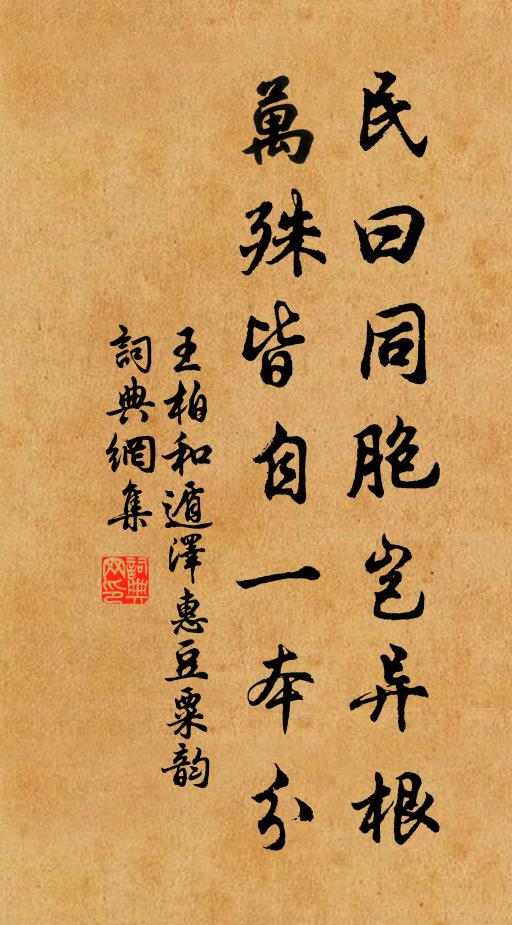 民曰同胞岂异根
萬殊皆自一本分
王柏和遁澤惠豆粟韵
詞典網集
詞典网印